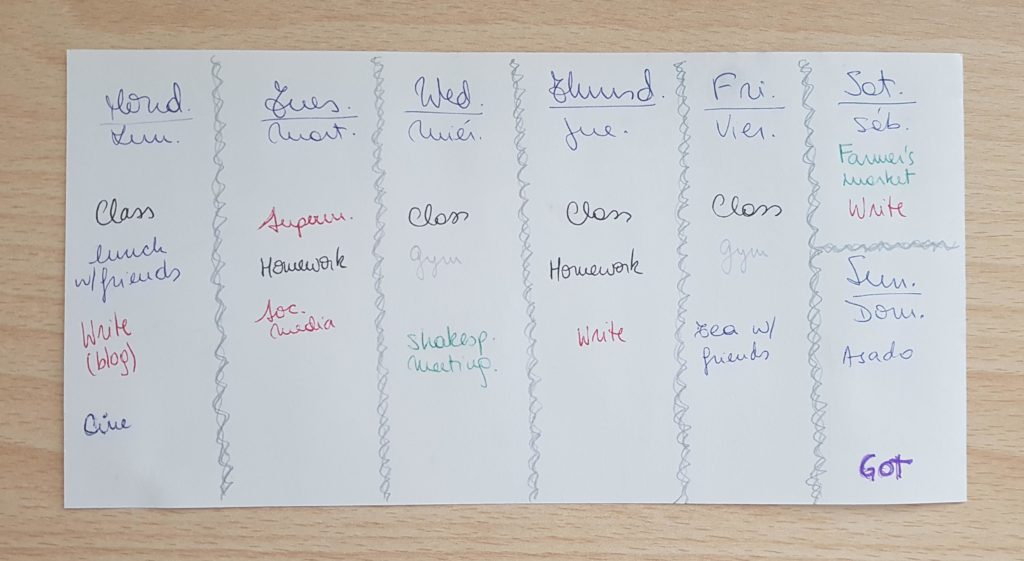 Mond.
Lun.
Class
lunch
w/friends
Write
(blog)
Cine
Tues.
Mart.
Superm.
Homework
Soc.
Media
Wed.
Miér.
Class
Gym
Shakesp.
Meeting.
Thursd.
Jue.
Class
Homework
Write
Fri.
Vier.
Class
Gym
Tea w/
friends
Sat.
Sáb.
Farmer's
market
Write
Sun.
Dom.
Asado
GOT